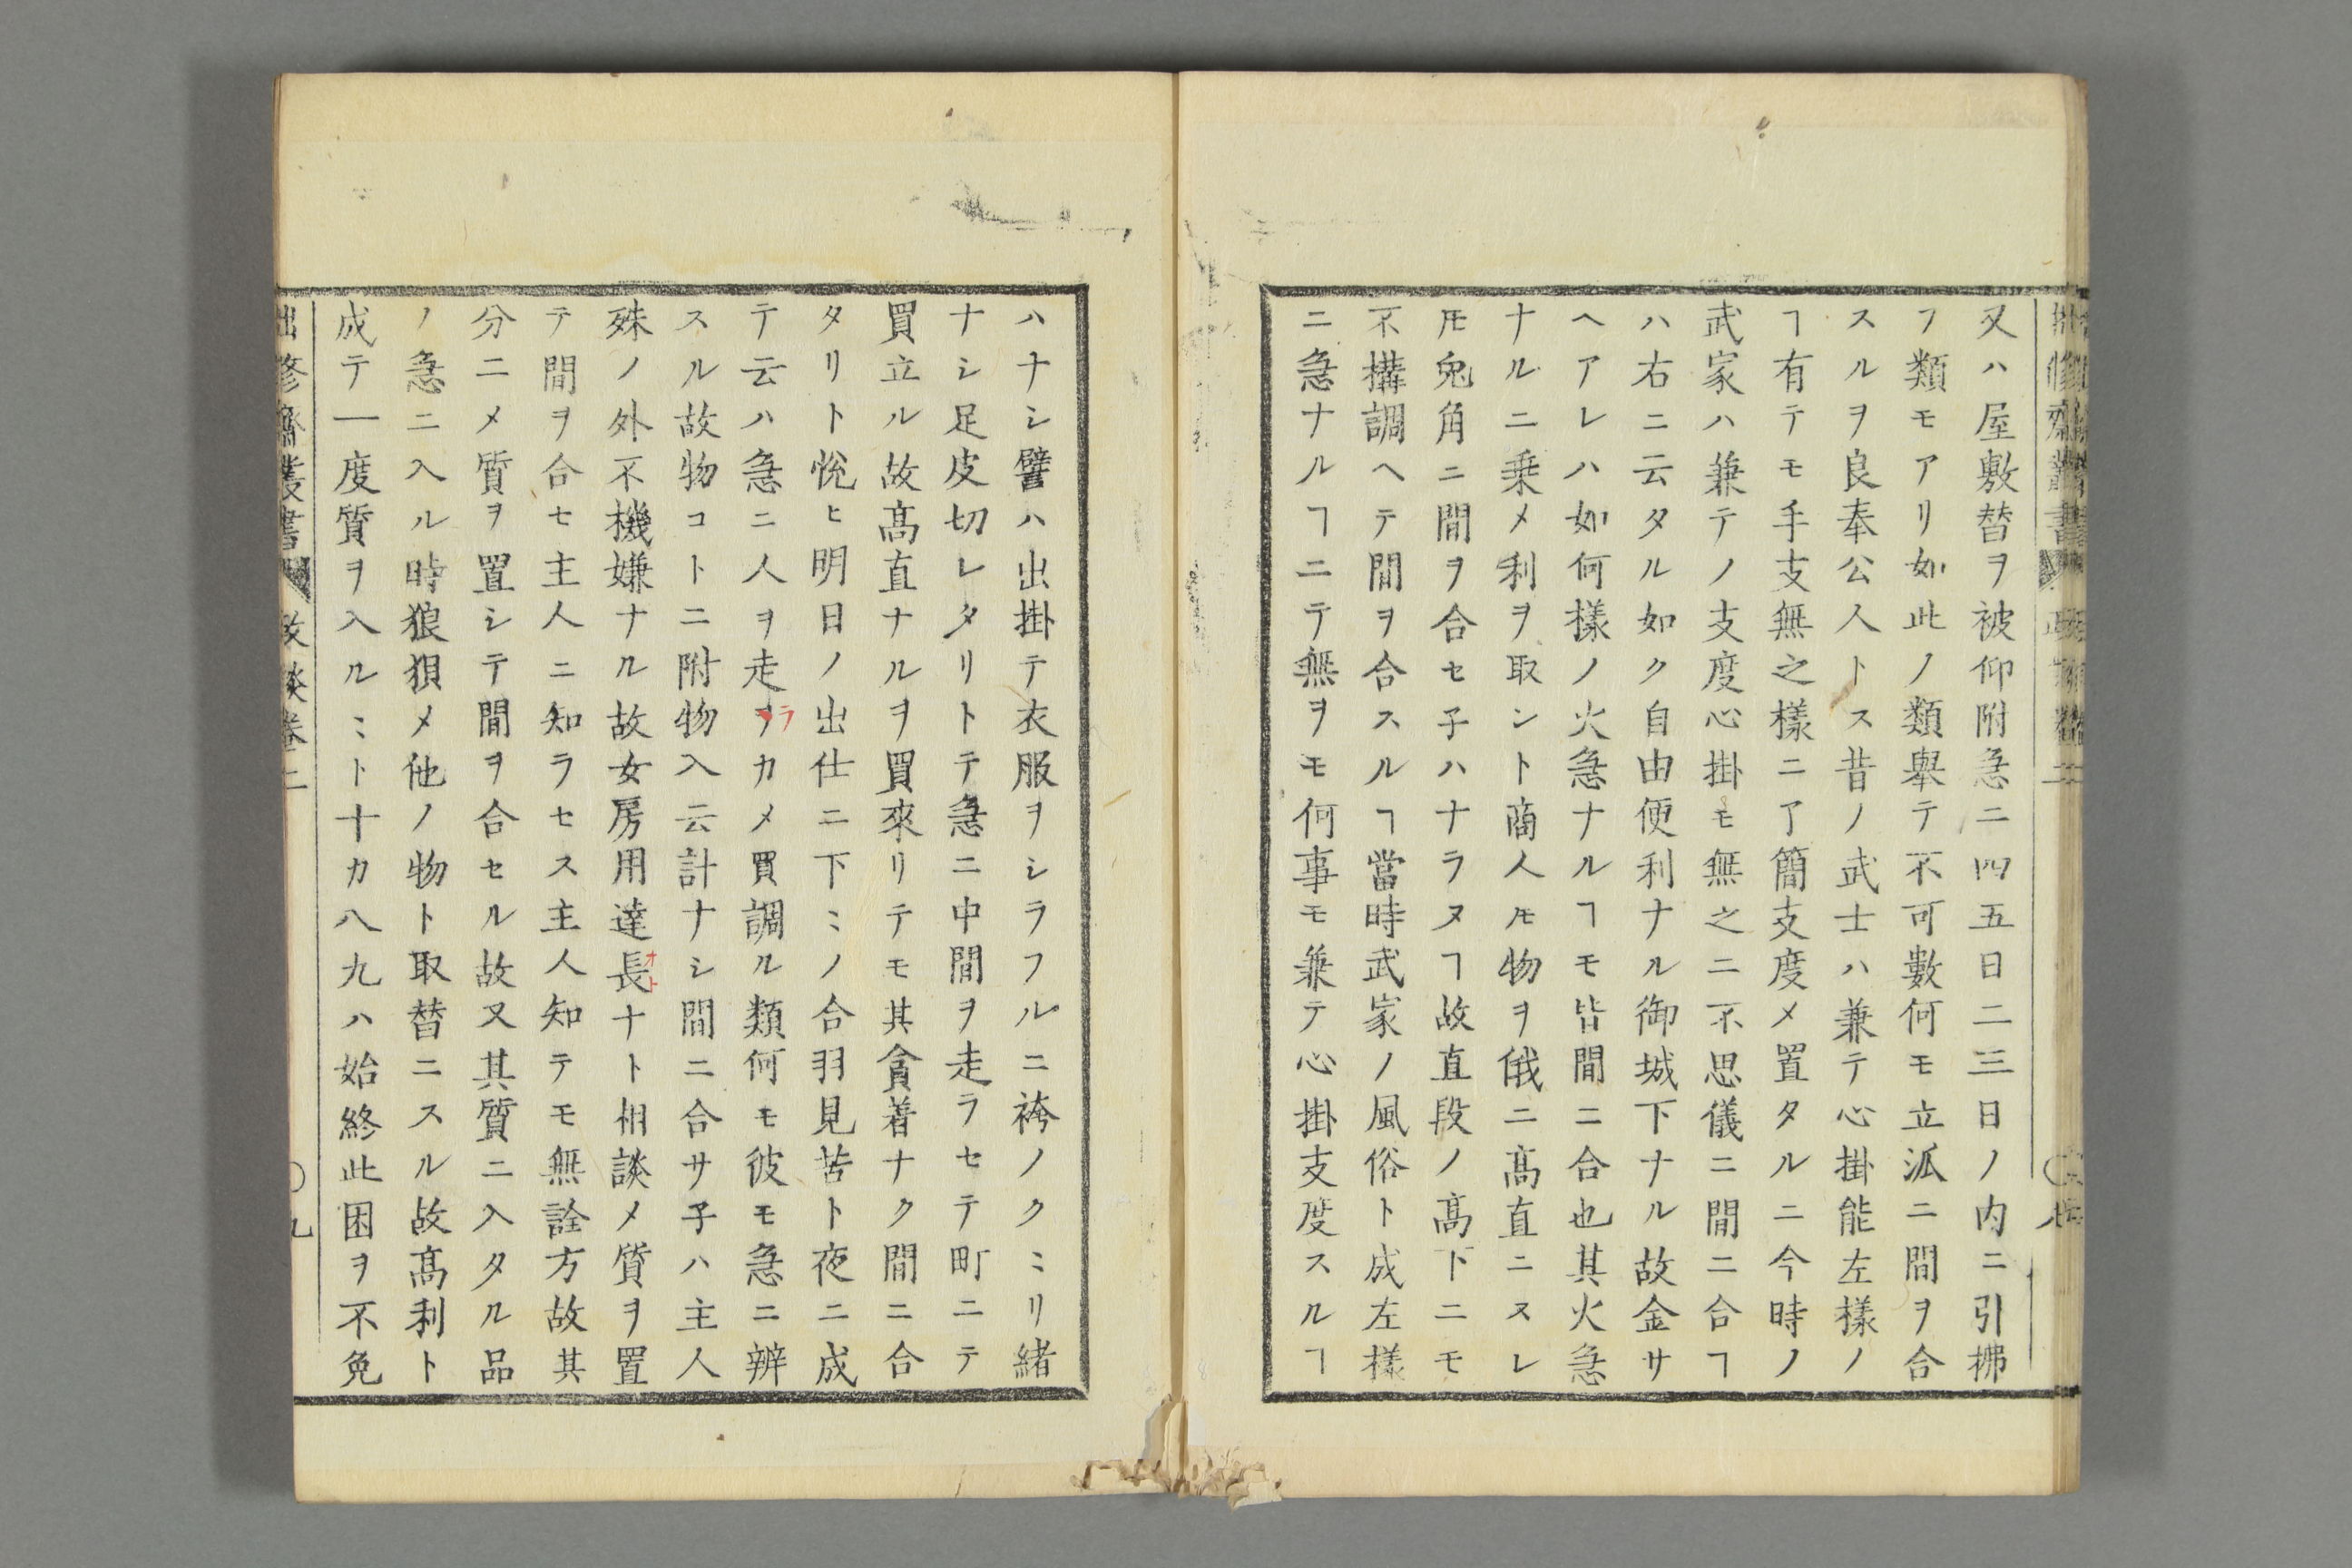 又ハ屋敷替ヲ被仰附急ニ四五日二三日ノ内ニ引拂
フ類モアリ如此ノ類舉テ不可數何モ立派ニ間ヲ合
スルヲ良奉公人トス昔ノ武士ハ兼テ心掛能左樣ノ
ヿ有テモ手支無之樣ニ了簡支度メ置タルニ今時ノ
武家ハ兼テノ支度心掛モ無之ニ不思儀ニ間ニ合ヿ
ハ右ニ云タル如ク自由便利ナル御城下ナル故金サ
ヘアレハ如何樣ノ火急ナルヿモ皆間ニ合也其火急
ナルニ乗メ利ヲ取ント商人𪜈物ヲ俄ニ髙直ニスレ
𪜈兎角ニ間ヲ合セ子ハナラヌヿ故直段ノ髙下ニモ
不構調ヘテ間ヲ合スルヿ當時武家ノ風俗ト成左樣
ニ急ナルヿニテ無ヲモ何事モ兼テ心掛支度スルヿ
ハナシ譬ハ出掛テ衣服ヲシラフルニ袴ノクヽリ緒
ナシ足皮切レタリトテ急ニ中間ヲ走ラセテ町ニテ
買立ル故髙直ナルヲ買來リテモ其貪着ナク間ニ合
タリト悅ヒ明日ノ出仕ニ下ミノ合羽見苦ト夜ニ成
テ云ハ急ニ人ヲ走ヲラカメ買調ル類何モ彼モ急ニ辨
スル故物コトニ附物入云計ナシ間ニ合サ子ハ主人
殊ノ外不機嫌ナル故女房用達長オトナト相談メ質ヲ置
テ間ヲ合セ主人ニ知ラセス主人知テモ無詮方故其
分ニメ質ヲ置シテ間ヲ合セル故又其質ニ入タル品
ノ急ニ入ル時狼狽メ他ノ物ト取替ニスル故髙利ト
成テ一度質ヲ入ルヽト十カ八九ハ始終此困ヲ不免
修齋叢書 政談卷二 〇九